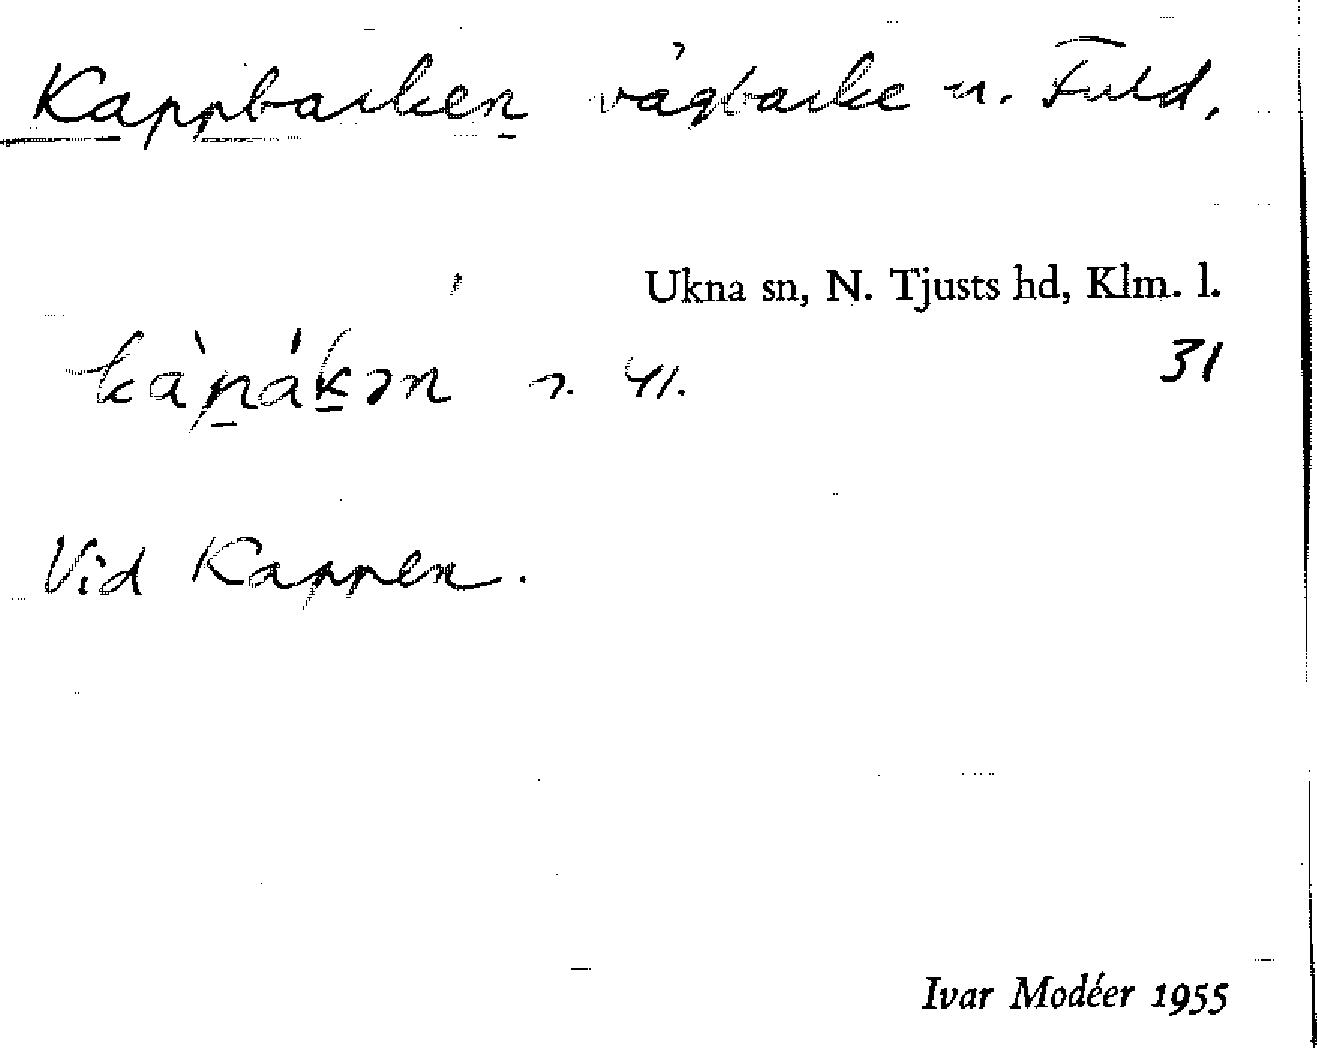 Kappbacken vägbacke u. Fuld.
Ukna sn, N. Tjusts hd, Klm. l.
31
Vid Kappen.
Ivar Modéer 1955